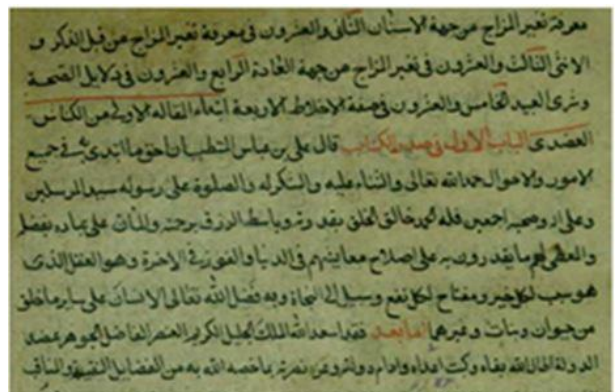 معرفة تغير المزاج من جهة الاسنان الثانى والعشرون فى معرفة تغير المزاج من قبل الذكر و
الانثى الثالث والعشرون فى تغير المزاج من جهة العادة الرابع والعشرون فى دلايل الصحة
وشرى العبيد الخامس والعشرون فى صفة الاخلاط الاربعة ابتداء المقاله الاولى من الكناش
العضدى الباب الاول فى صدر الكتاب قال على بن عباس المتطبب ان احق ما ابتدئ به فى جميع
الامور والاحوال حمد الله تعالى والثناء عليه والشكر له والصلوة على رسوله سيد المرسلين
وعلى اله وصحبه اجمعين فله الحمد خالق الخلق بقدرته وباسط الرزق برحمته والمنان على عباده بفضله
والمعطى لهم ما يقدرون به على اصلاح معايشهم فى الدنيا والفوز فى الاخرة وهو العقل الذى
هو سبب لكل خير ومفتاح لكل نفع وسبيل الى النجاة وبه فضل الله تعالى الانسان على ساير ما خلق
من حيوان ونبات وغيرهما اما بعد فقد اسعد الله الملك الجليل الكريم العنصر الفاضل الجوهر عضد
الدولة اطال الله بقاه وكبت اعداه وادام دولته وعز نصرته بما خصه الله به من الفضايل النفيسة والمناقب